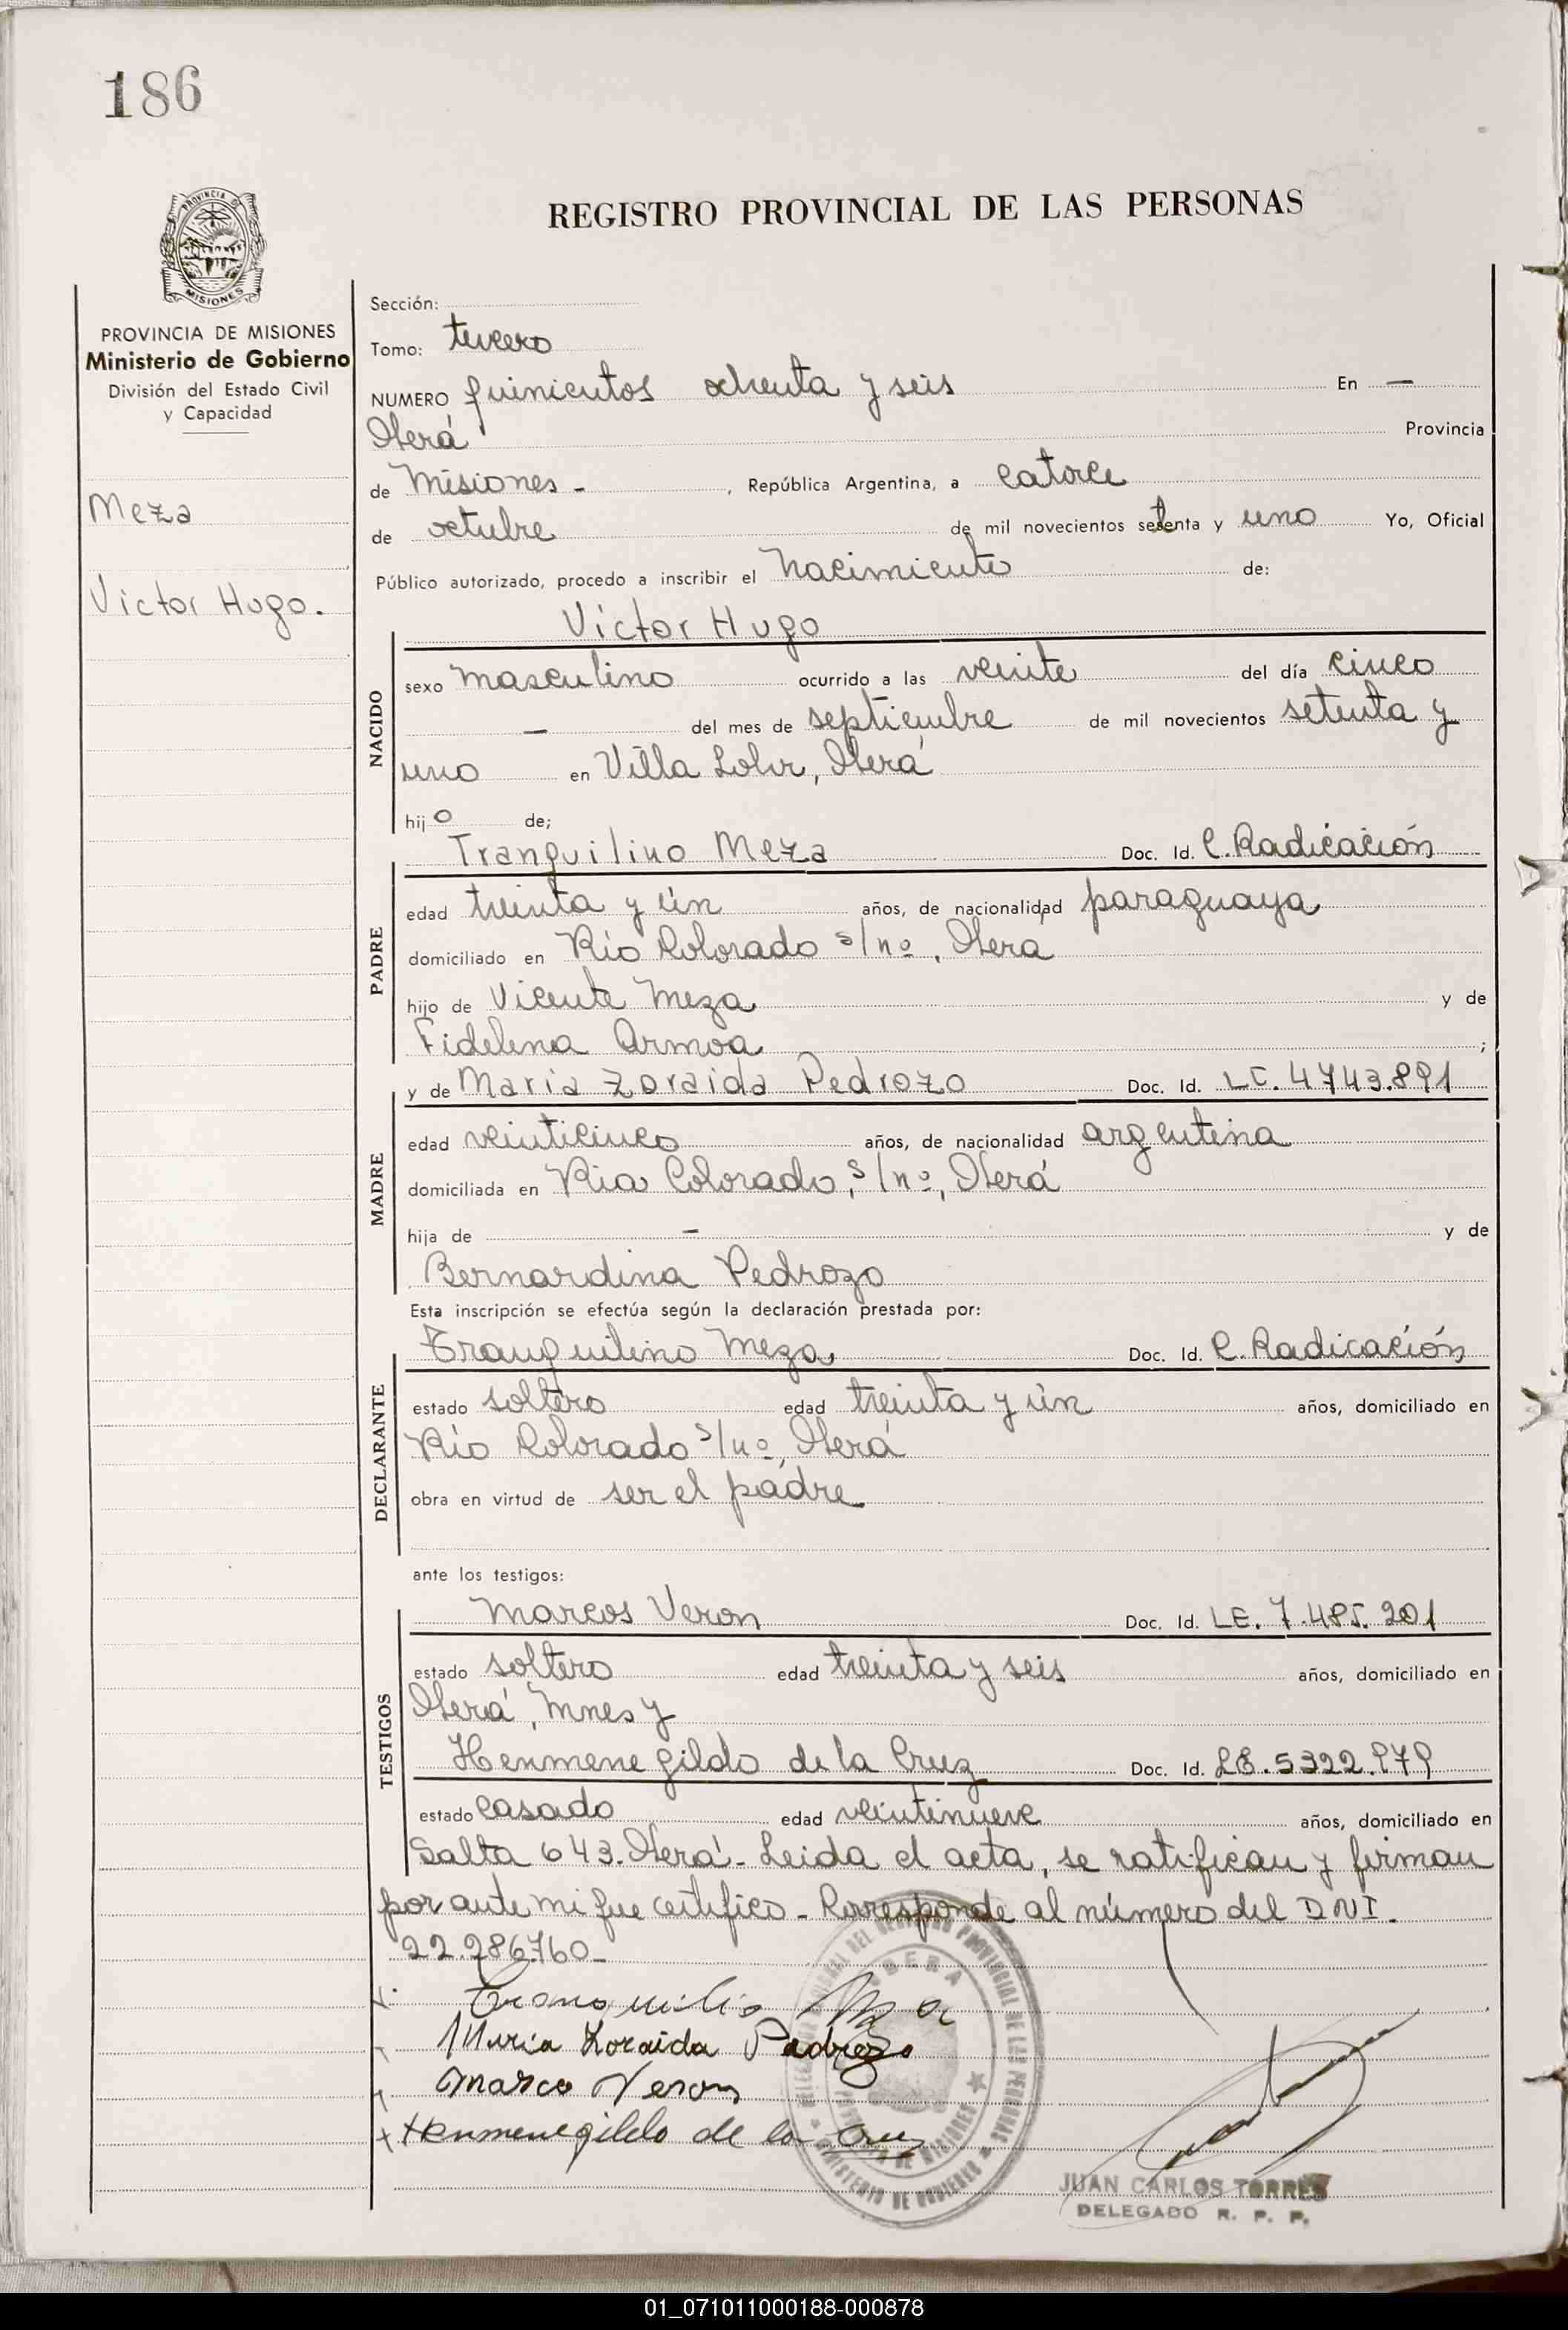 186
PROVINCIA DE
MISIONES
REGISTRO PROVINCIAL DE LAS PERSONAS
PROVINCIA DE MISIONES
Ministerio de Gobierno
División del Estado Civil
y Capacidad
Meza
Victor Hugo.
Sección:
Tomo: tercero
NUMERO quinientos ochenta y seis En —
Oberá Provincia
de Misiones - , República Argentina, a catorce
de octubre de mil novecientos setenta y uno Yo, Oficial
Público autorizado, procedo a inscribir el nacimiento de:
Víctor Hugo
NACIDO
sexo masculino ocurrido a las veinte del día cinco
— del mes de septiembre de mil novecientos setenta y
uno en Villa Lohr, Oberá
hijo de;
Tranquilino Meza Doc. Id. C. Radicación
PADRE
edad treinta y ún años, de nacionalidad paraguaya
domiciliado en Río Colorado s/nº, Oberá
hijo de Vicente Meza y de
Fidelina Armoa ;
y de María Zoraida Pedrozo Doc. Id. LC. 4743.891
MADRE
edad veinticinco años, de nacionalidad argentina
domiciliada en Río Colorado, s/nº, Oberá
hija de — y de
Bernardina Pedrozo
Esta inscripción se efectúa según la declaración prestada por:
Tranquilino Meza Doc. Id. C. Radicación
DECLARANTE
estado soltero edad treinta y ún años, domiciliado en
Río Colorado s/nº, Oberá
obra en virtud de ser el padre
ante los testigos:
Marcos Veron Doc. Id. LE. 7.485.201
TESTIGOS
estado soltero edad treinta y seis años, domiciliado en
Oberá, Mnes y
Henmenegildo de la Cruz Doc. Id. LE. 5322.979
estado casado edad veintinueve años, domiciliado en
Salta 643. Oberá - Leida el acta, se ratifican y firman
por ante mi que certifico - Corresponde al número del DNI.
22.286.760 -
Maria Zoraida Pedrozo
Marco Veron
Henmenegildo de la Cruz
JUAN CARLOS TORRES
DELEGADO R. P. P.
01_071011000188-000878